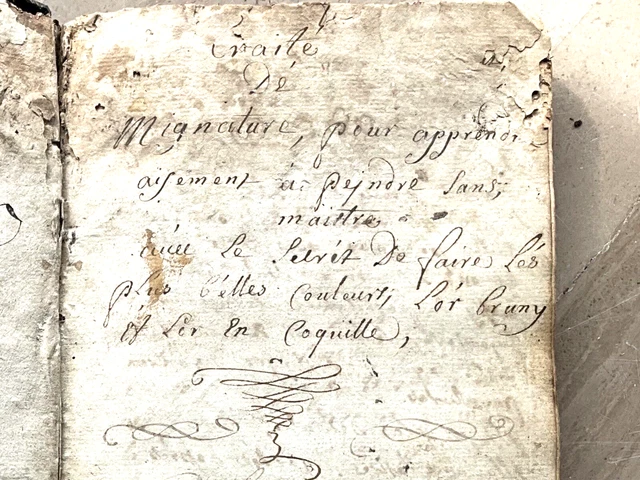 traité
Dé
Mignature, pour apprendr
aisément à pejndre sans,
maistre,
avec Le Secrét De faire Lés
plus bélles Couleurs, Lór bruny
et Lór En Coquille,